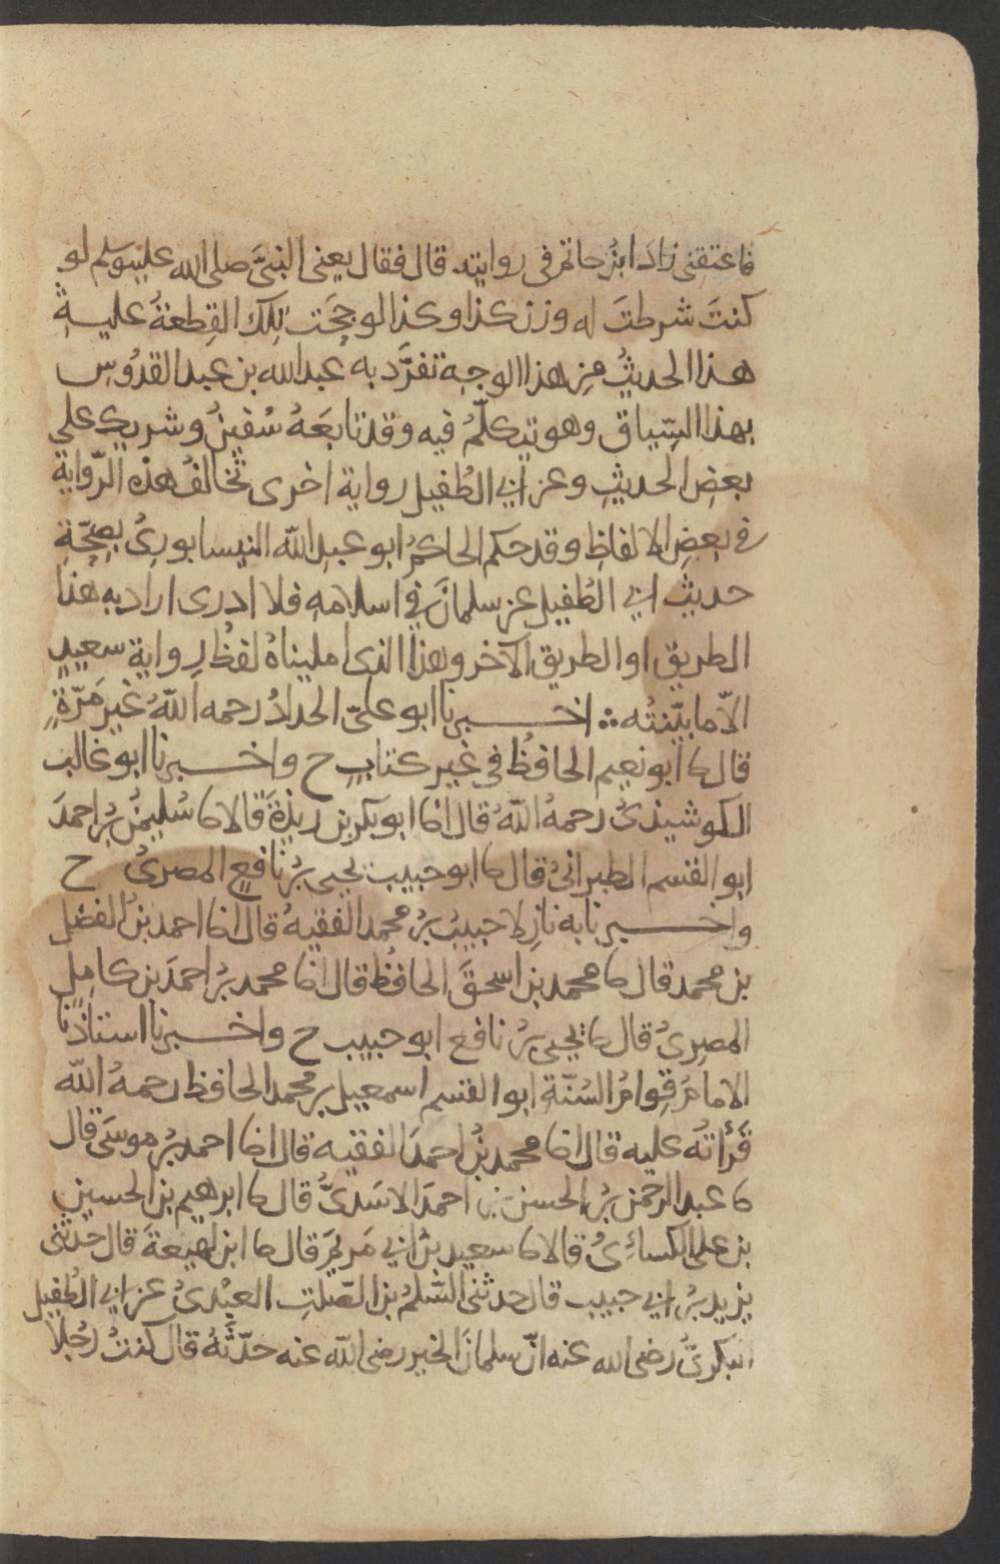 فاعتقنى زاد ابن حاتم فى روايته قال فقال يعنى النبىَّ صلى الله عليه وسلم لو
كنتَ شرطتَ له وزن كذا وكذا لرجحَت تلك القِطعةُ عليه
هذا الحديثُ من هذا الوجه تفرَّد به عبدالله بن عبد القدُوس
بهذا السّياق وهو يتكلّمُ فيه وقد تابعَهُ سُفينُ وشريك على
بعض الحديثِ وعن ابى الطُفيل رواية اخرى تخالفُ هذه الرّواية
فى بعضِ الالفاظِ وقد حكم الحاكمُ ابو عبد الله النيسابورىُ بصِحّةِ
حديث ابى الطُفيل عن سلمانَ فى اسلامه فلا ادرى اراد به هذا
الطريق او الطريق الآخر وهذا الذى امليناهُ لفظ رواية سعيد
الاّ ما بيّنتُه ∴ اخبرنا ابو علىّ الحدادُ رحمه اللهُ غيرَ مَرّةٍ
قال نا ابو نعيم الحافظُ فى غير كتابٍ ح واخبرنا ابو غالب
الكوشيذىُ رحمهُ اللهُ قال انا ابو بكر بن ريذةَ قالا نا سُليمنُ بنُ احمدَ
ابو القسم الطبرانىُ قال نا ابو حبيب يحيى بنُ نافعٍ المصرىُ ح
واخبرنا به نازلا حبيبُ بنُ محمد الفقيهُ قال انا احمد بنُ الفضل
بن محمد قال نا محمد بن اسحقَ الحافظُ قال انا محمد بنُ احمدَ بن كاملٍ
المصرىُ قال نا يحيى بنُ نافع ابو حبيب ح واخبرنا استاذُنا
الامامُ قِوامُ السُنّةِ ابو القسم اسمعيل بن محمد الحافظ رحمهُ الله
قَرَأتُه عليه قال انا محمد بنُ احمدَ الفقيه قال انا احمد بنُ موسَى قال
نا عبد الرحمن بنُ الحسن بن احمدَ الاسَدىُّ قال نا ابرهيم بن الحسين
بن على الكسائِىُ قالا نا سعيد بنُ ابى مَريَمَ قال نا ابن لهيعةَ قال حدثنى
يزيد بنُ ابى حبيب قال حدثنى السَّلمُ بن الصّلتِ العبْدىُ عن ابى الطُفيل
البكرىّ رضى الله عنه انّ سلمانَ الخير رضى الله عنه حدّثَهُ قال كنتُ رَجُلاً